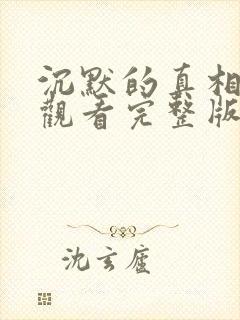 沉默的真相
觀看完整版
沈玄廬